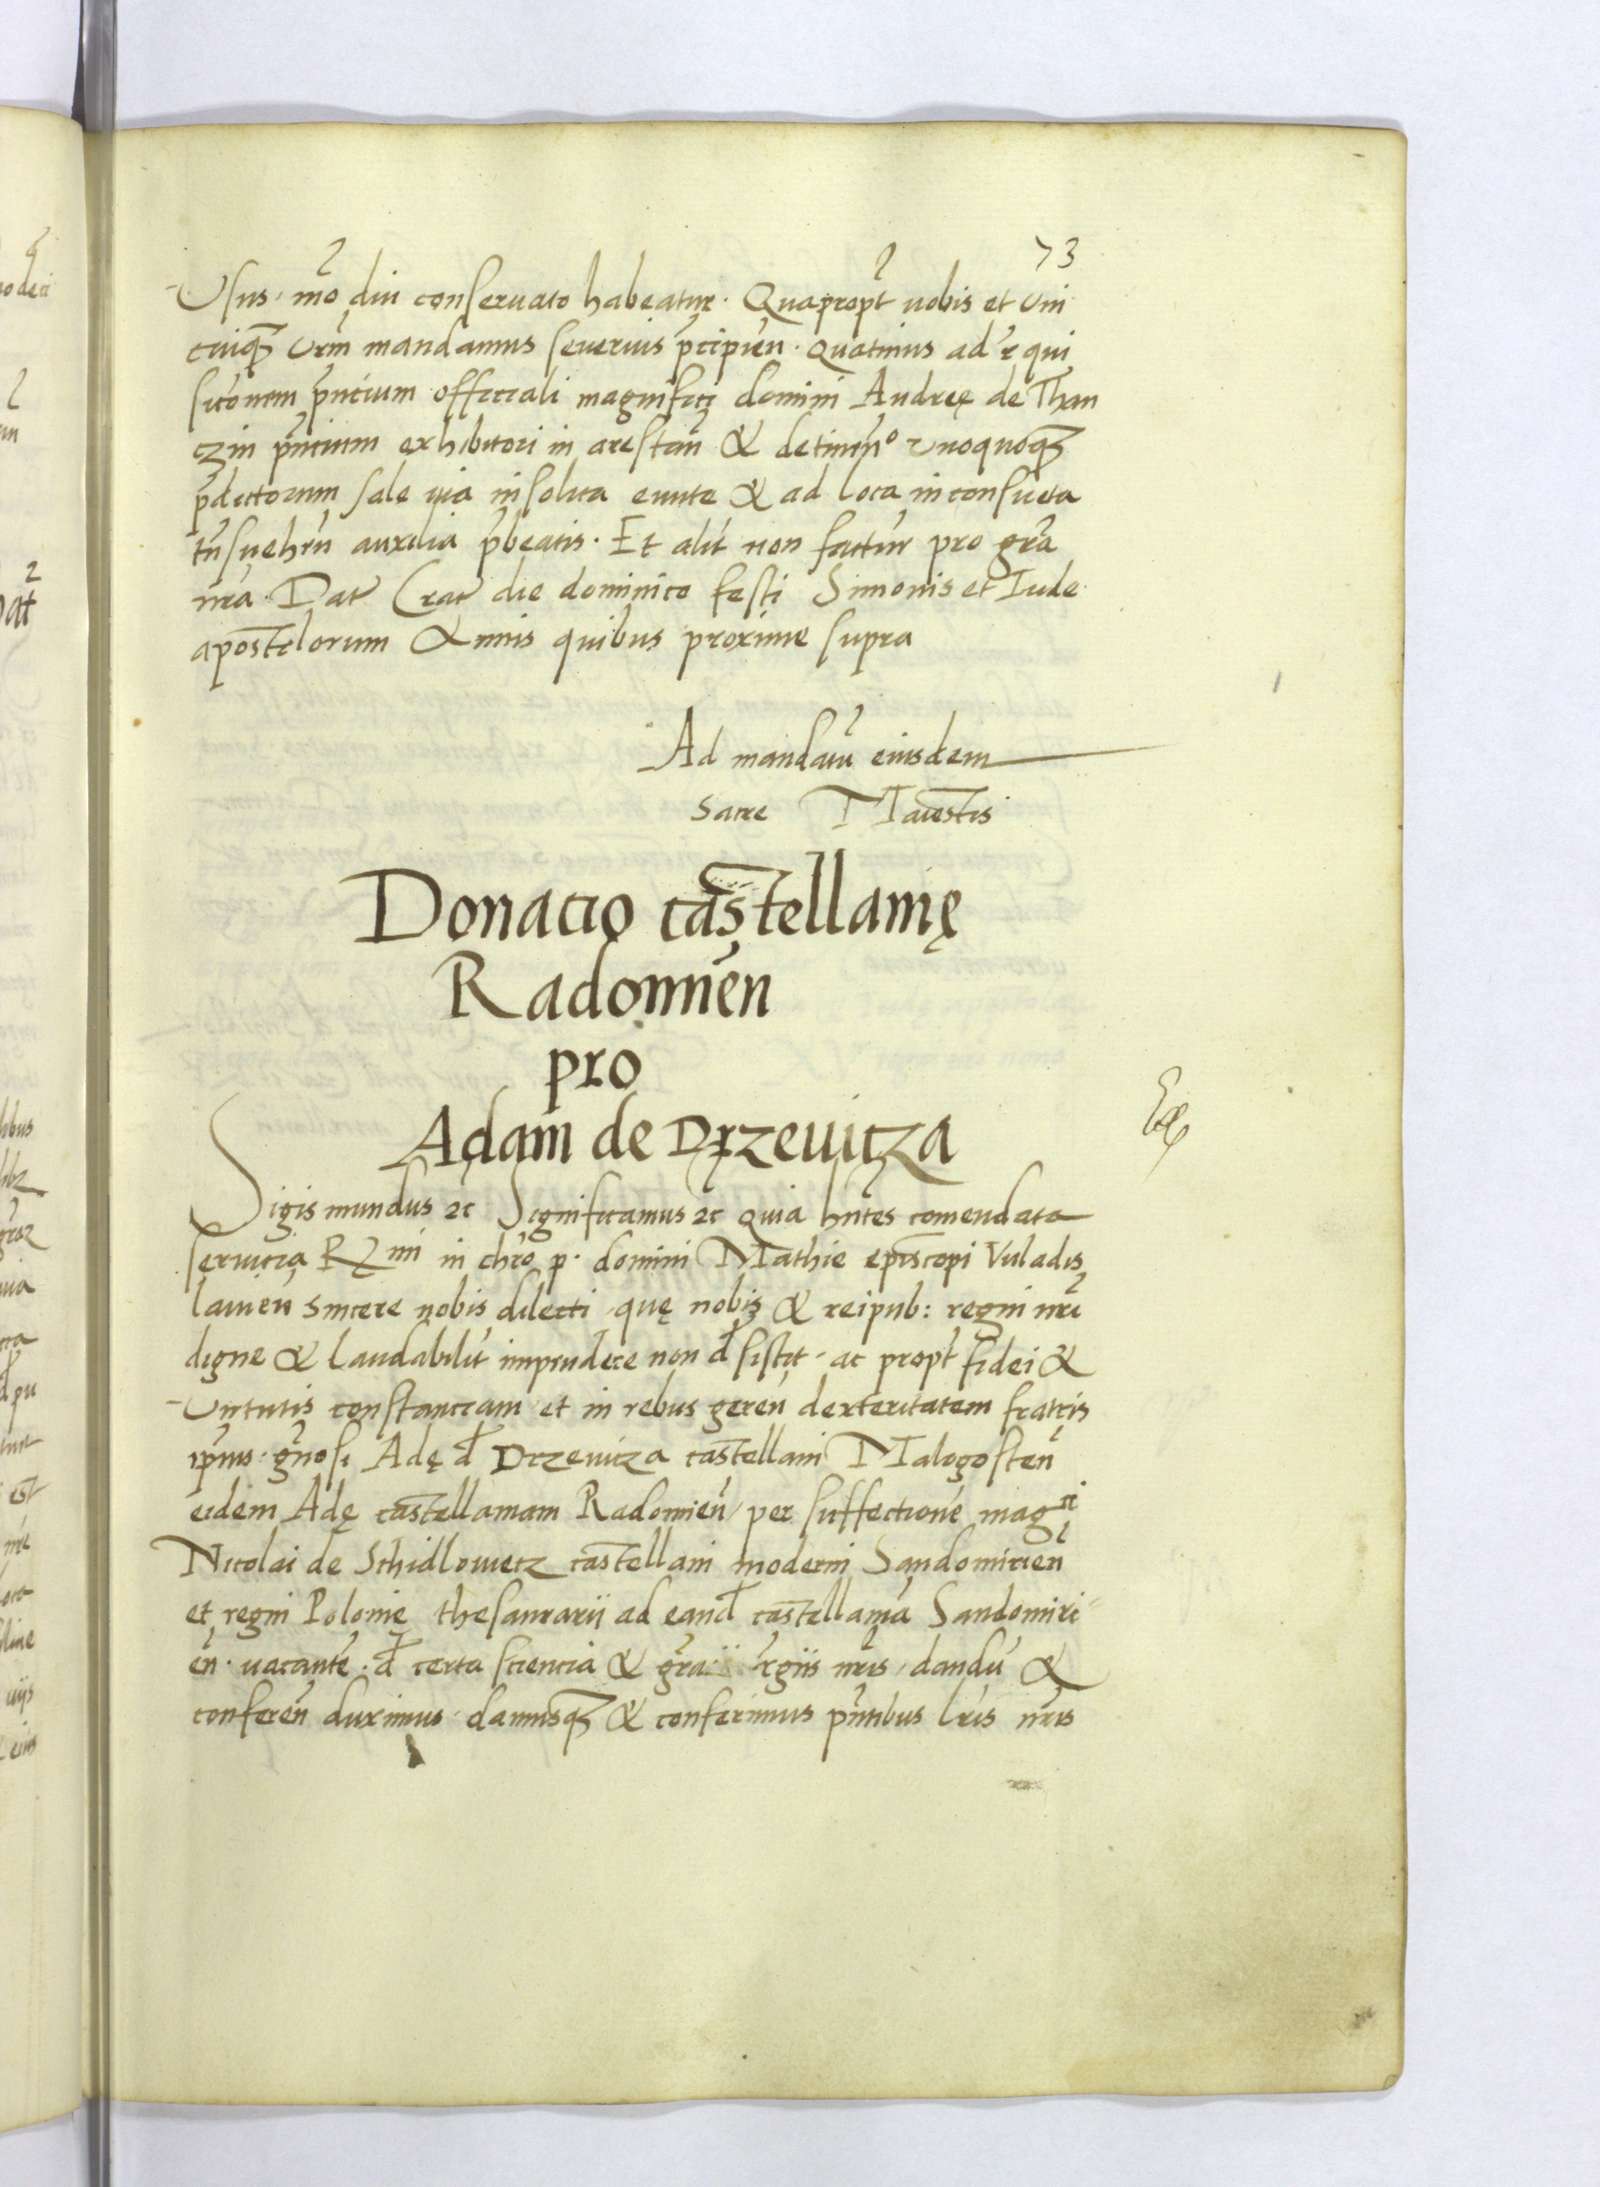 73
Usus. mo diu conseruato habeatur. Quapropt uobis et vni
cuiqz vrm mandamus seuerius pcipien. quatinus ad rqui
siconem pncium officiali magnifici domini Andreę de Than
czin pncium exhibitori in arestan & detinen° vnoquoqz
pdictorum sale via insolita eunte & ad loca inconsueta
tnsuehen auxilia pbeatis. Et alit non factur pro gra
nra. Dat Crac die dominico festi Simonis et Iude
apostolorum Annis quibus proxime supra
Ad mandatu eiusdem
sacre Maiestis
Donacio castellanię
Radomien
pro
Adam de Drzeuicza
Sigismundus zc Significamus zc quia hntes comendata
seruicia Rmi in chro p. domini Mathie episcopi Vuladis
lauien sincere nobis dilecti, quę nobis & reipub: regni nri
digne & laudabilit impendere non dsistit. ac propt fidei &
virtutis constanciam et in rebus geren dexteritatem fratris
ipius. gnosi Adę d Drzeuicza castellani Malogosten
eidem Adę castellaniam Radomien per suffectione magci
Nicolai de Schidlowecz castellani moderni Sandomirien
et regni Polonię thesaurarii ad eand castellania Sandomiri
en. vacante. d certa sciencia & gra rgiis nris, dandu &
conferen duximus. damusqz & conferimus pntibus lris nris